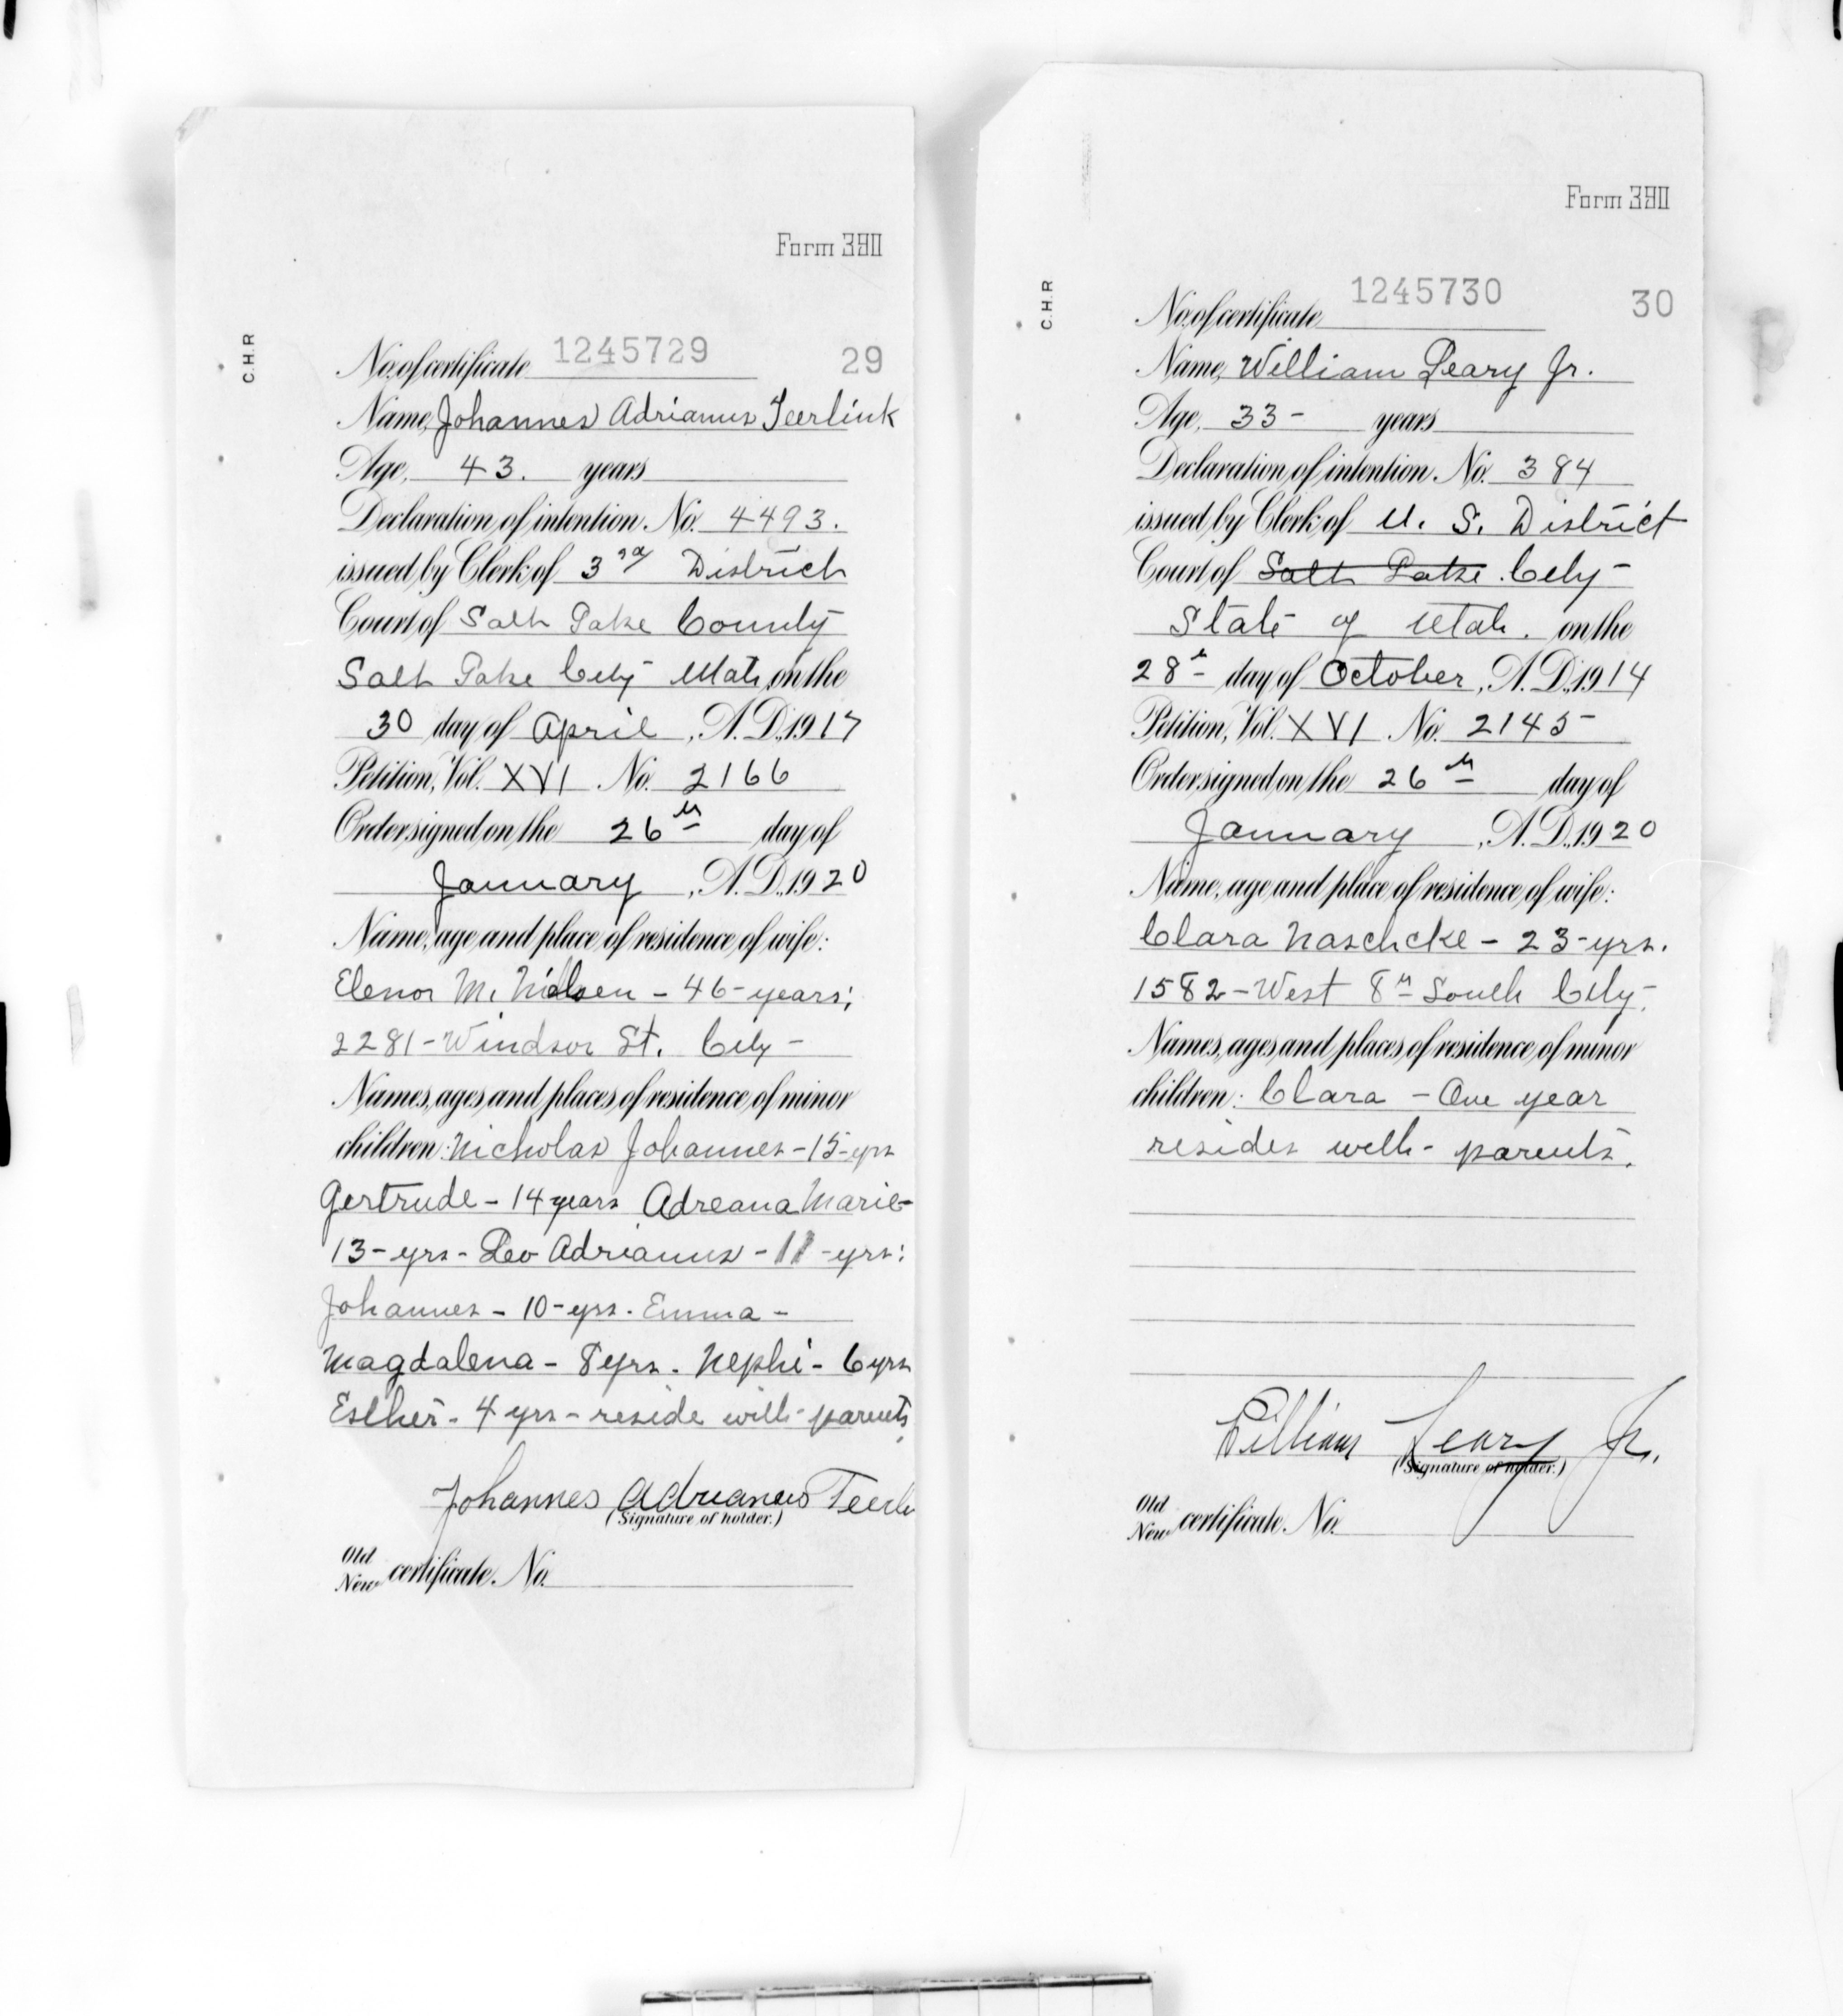 Form 390
C.H.R
No. of certificate 1245729 29
Name, Johannes Adrianus Teerlink
Age, 43. years
Declaration of intention. No. 4493.
issued by Clerk of 3rd District
Court of Salt Lake County
Salt Lake City Utah, on the
30 day of April, A.D. 1917
Petition, Vol. XVI No. 2166
Order signed on the 26th day of
January, A.D. 1920
Name, age and place of residence of wife:
Elenor M. Nielsen - 46 - years;
2281 - Windsor St. City -
Names, ages and places of residence of minor
children: Nicholas Johannes - 15 - yrs
Gertrude - 14 years Adreana Marie -
13 - yrs - Leo Adrianus - 11 - yrs:
Johannes - 10 - yrs. Emma -
Magdalena - 8 yrs - Nephi - 6 yrs
Esther - 4 yrs - reside with parents.
Johannes Adrianus
(Signature of holder.)
Old
New certificate. No.
Form 390
C.H.R
No. of certificate 1245730 30
Name, William Leary Jr.
Age, 33 - years
Declaration of intention. No. 384
issued by Clerk of U. S. District
Court of Salt Lake City -
State of Utah. on the
28th day of October, A.D. 1914
Petition, Vol. XVI No. 2145 -
Order signed on the 26th day of
January, A.D. 1920
Name, age and place of residence of wife:
Clara Naschcke - 23 - yrs.
1582 - West 8th South City -
Names, ages and places of residence of minor
children: Clara - One year
resides with - parents.
William Leary Jr.
(Signature of holder.)
Old
New certificate. No.